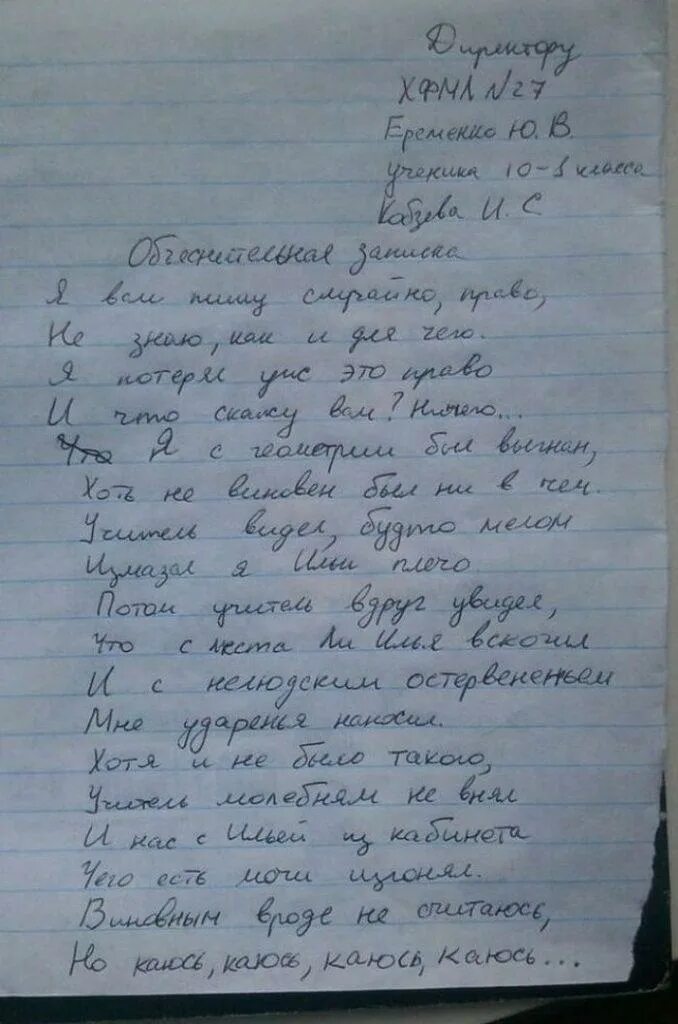 Директору
ХФМЛ №27
Еременко Ю.В.
ученика 10-1 класса
Кобзева И.С
Объеснительная записка
Я вам пишу случайно, право,
Не знаю, как и для чего.
Я потерял уж это право
И что скажу вам? Ничего...
Что Я с геометрии был выгнан,
Хоть не виновен был ни в чем.
Учитель видел, будто мелом
Измазал я Ильи плечо
Потом учитель вдруг увидел,
Что с места Ли Илья вскочил
И с нелюдским остервененьем
Мне ударенья наносил.
Хотя и не было такого,
Учитель молебням не внял
И нас с Ильей из кабинета
Чего есть мочи изгонял.
Виновным вроде не считаюсь,
Но каюсь, каюсь, каюсь, каюсь...